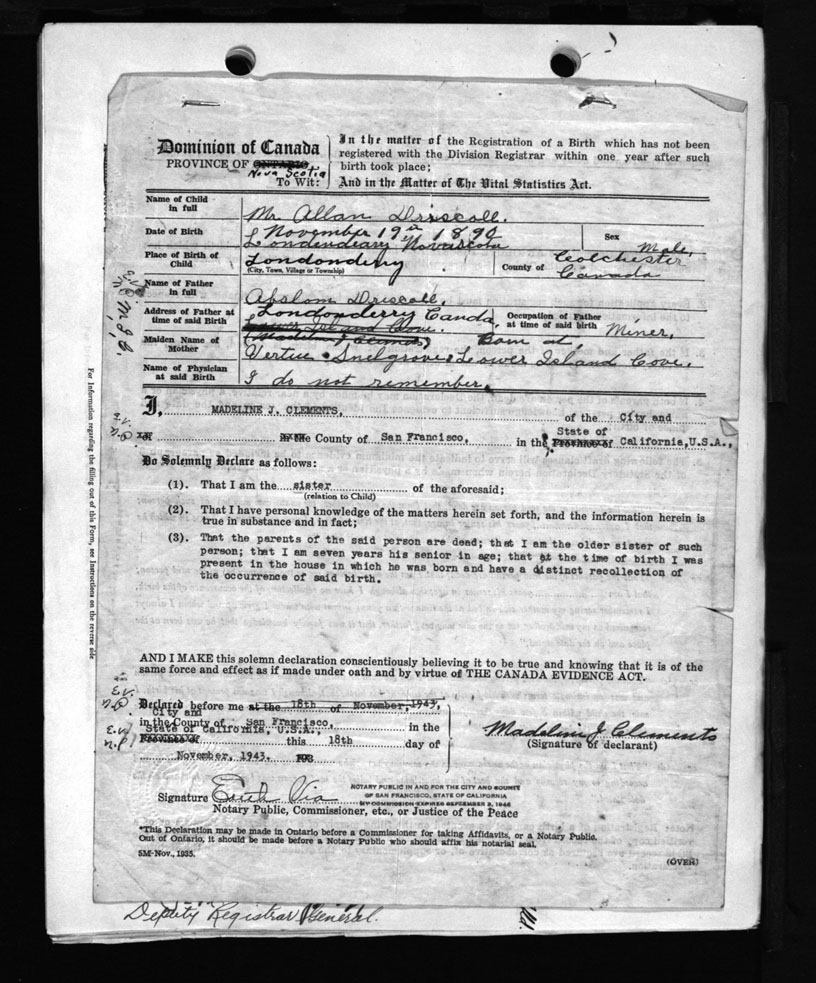 Dominion of Canada
PROVINCE OF ONTARIO
Nova Scotia
To Wit:
In the matter of the Registration of a Birth which has not been
registered with the Division Registrar within one year after such
birth took place;
And in the Matter of The Vital Statistics Act.
Name of Child
in full
Mr. Allan Driscoll.
Date of Birth
November 19th 1890
Londendeary Novascota
Sex
Male,
Place of Birth of
Child
Londonderry
(City, Town, Village or Township)
County of
Colchester
Canada
Name of Father
in full
Absalom Driscoll,
Address of Father at
time of said Birth
Londonderry Canda,
Lower Island Cove.
Occupation of Father
at time of said birth
Miner,
Maiden Name of
Mother
(Madeline J Clements)
Born at,
Vertue Snelgrove. Loower Island Cove.
Name of Physician
at said Birth
I do not remember.
M. J. C.
For Information regarding the filling out of this Form, see Instructions on the reverse side
I, MADELINE J. CLEMENTS, of the City and
E.V.
N.P.
of the County of San Francisco, in the State of
Province of California, U.S.A.,
Do Solemnly Declare as follows:
(1). That I am the sister of the aforesaid;
(relation to Child)
(2). That I have personal knowledge of the matters herein set forth, and the information herein is
true in substance and in fact;
(3). That the parents of the said person are dead; that I am the older sister of such
person; that I am seven years his senior in age; that at the time of birth I was
present in the house in which he was born and have a distinct recollection of
the occurrence of said birth.
AND I MAKE this solemn declaration conscientiously believing it to be true and knowing that it is of the
same force and effect as if made under oath and by virtue of THE CANADA EVIDENCE ACT.
E.V.
N.P.
Declared before me at the 18th of November, 1943,
City and
in the County of San Francisco, in the
E.V.
N.P.
State of California, U.S.A.,
Province of this 18th day of
November, 1943. 193
Madeline J Clements
(Signature of declarant)
Signature Erich Via
NOTARY PUBLIC IN AND FOR THE CITY AND COUNTY
OF SAN FRANCISCO, STATE OF CALIFORNIA
MY COMMISSION EXPIRES SEPTEMBER 2, 1946
Notary Public, Commissioner, etc., or Justice of the Peace
*This Declaration may be made in Ontario before a Commissioner for taking Affidavits, or a Notary Public.
Out of Ontario, it should be made before a Notary Public who should affix his notarial seal.
5M-Nov., 1935.
(OVER)
Deputy Registrar General.